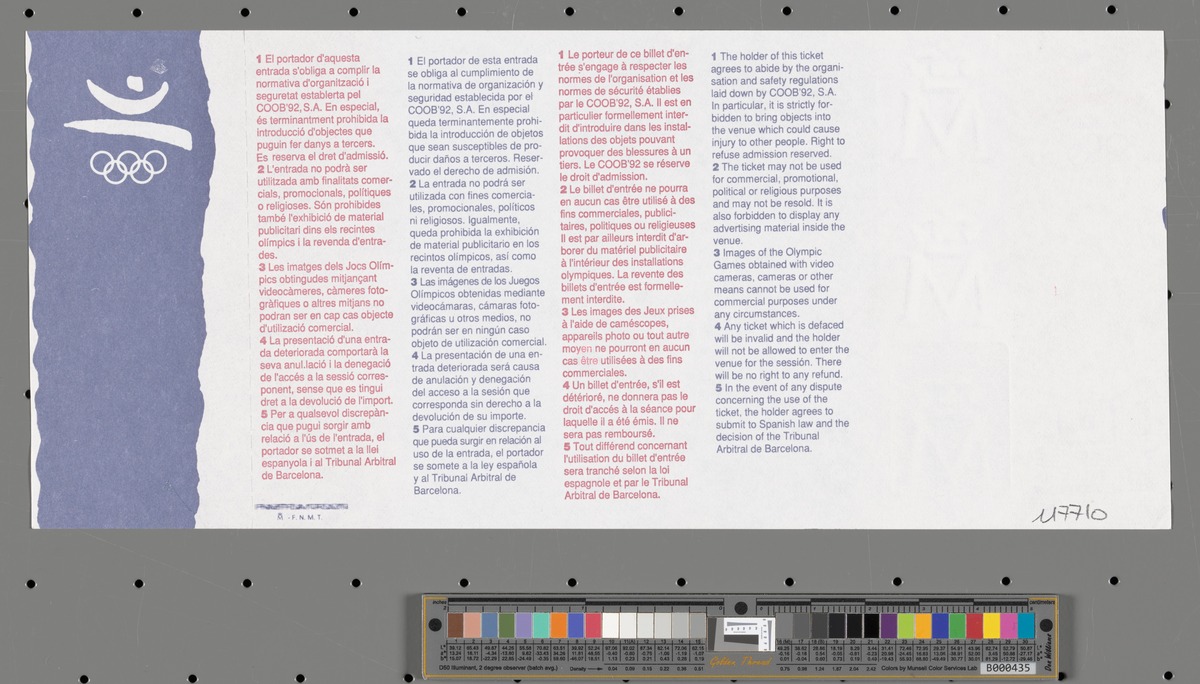 1 El portador d'aquesta
entrada s'obliga a complir la
normativa d'organització i
seguretat establerta pel
COOB'92, S.A. En especial,
és terminantment prohibida la
introducció d'objectes que
puguin fer danys a tercers.
Es reserva el dret d'admissió.
2 L'entrada no podrà ser
utilitzada amb finalitats comer-
cials, promocionals, polítiques
o religioses. Són prohibides
també l'exhibició de material
publicitari dins els recintes
olímpics i la revenda d'entra-
des.
3 Les imatges dels Jocs Olím-
pics obtingudes mitjançant
videocàmeres, càmeres foto-
gràfiques o altres mitjans no
podran ser en cap cas objecte
d'utilització comercial.
4 La presentació d'una entra-
da deteriorada comportarà la
seva anul.lació i la denegació
de l'accés a la sessió corres-
ponent, sense que es tingui
dret a la devolució de l'import.
5 Per a qualsevol discrepàn-
cia que pugui sorgir amb
relació a l'ús de l'entrada, el
portador se sotmet a la llei
espanyola i al Tribunal Arbitral
de Barcelona.
- F. N. M. T.
1 El portador de esta entrada
se obliga al cumplimiento de
la normativa de organización y
seguridad establecida por el
COOB'92, S.A. En especial
queda terminantemente prohi-
bida la introducción de objetos
que sean susceptibles de pro-
ducir daños a terceros. Reser-
vado el derecho de admisión.
2 La entrada no podrá ser
utilizada con fines comercia-
les, promocionales, políticos
ni religiosos. Igualmente,
queda prohibida la exhibición
de material publicitario en los
recintos olímpicos, así como
la reventa de entradas.
3 Las imágenes de los Juegos
Olímpicos obtenidas mediante
videocámaras, cámaras foto-
gráficas u otros medios, no
podrán ser en ningún caso
objeto de utilización comercial.
4 La presentación de una en-
trada deteriorada será causa
de anulación y denegación
del acceso a la sesión que
corresponda sin derecho a la
devolución de su importe.
5 Para cualquier discrepancia
que pueda surgir en relación al
uso de la entrada, el portador
se somete a la ley española
y al Tribunal Arbitral de
Barcelona.
1 Le porteur de ce billet d'en-
trée s'engage à respecter les
normes de l'organisation et les
normes de sécurité établies
par le COOB'92, S.A. Il est en
particulier formellement inter-
dit d'introduire dans les instal-
lations des objets pouvant
provoquer des blessures à un
tiers. Le COOB'92 se réserve
le droit d'admission.
2 Le billet d'entrée ne pourra
en aucun cas être utilisé à des
fins commerciales, publici-
taires, politiques ou religieuses
Il est par ailleurs interdit d'ar-
borer du matériel publicitaire
à l'intérieur des installations
olympiques. La revente des
billets d'entrée est formelle-
ment interdite.
3 Les images des Jeux prises
à l'aide de caméscopes,
appareils photo ou tout autre
moyen ne pourront en aucun
cas être utilisées à des fins
commerciales.
4 Un billet d'entrée, s'il est
détérioré, ne donnera pas le
droit d'accés à la séance pour
laquelle il a été émis. Il ne
sera pas remboursé.
5 Tout différend concernant
l'utilisation du billet d'entrée
sera tranché selon la loi
espagnole et par le Tribunal
Arbitral de Barcelona.
1 The holder of this ticket
agrees to abide by the organi-
sation and safety regulations
laid down by COOB'92, S.A.
In particular, it is strictly for-
bidden to bring objects into
the venue which could cause
injury to other people. Right to
refuse admission reserved.
2 The ticket may not be used
for commercial, promotional,
political or religious purposes
and may not be resold. It is
also forbidden to display any
advertising material inside the
venue.
3 Images of the Olympic
Games obtained with video
cameras, cameras or other
means cannot be used for
commercial purposes under
any circumstances.
4 Any ticket which is defaced
will be invalid and the holder
will not be allowed to enter the
venue for the sessión. There
will be no right to any refund.
5 In the event of any dispute
concerning the use of the
ticket, the holder agrees to
submit to Spanish law and the
decision of the Tribunal
Arbitral de Barcelona.
117710
inches
centimeters
D50 Illuminant, 2 degree observer
Density
Golden Thread
Colors by Munsell Color Services Lab
B000435